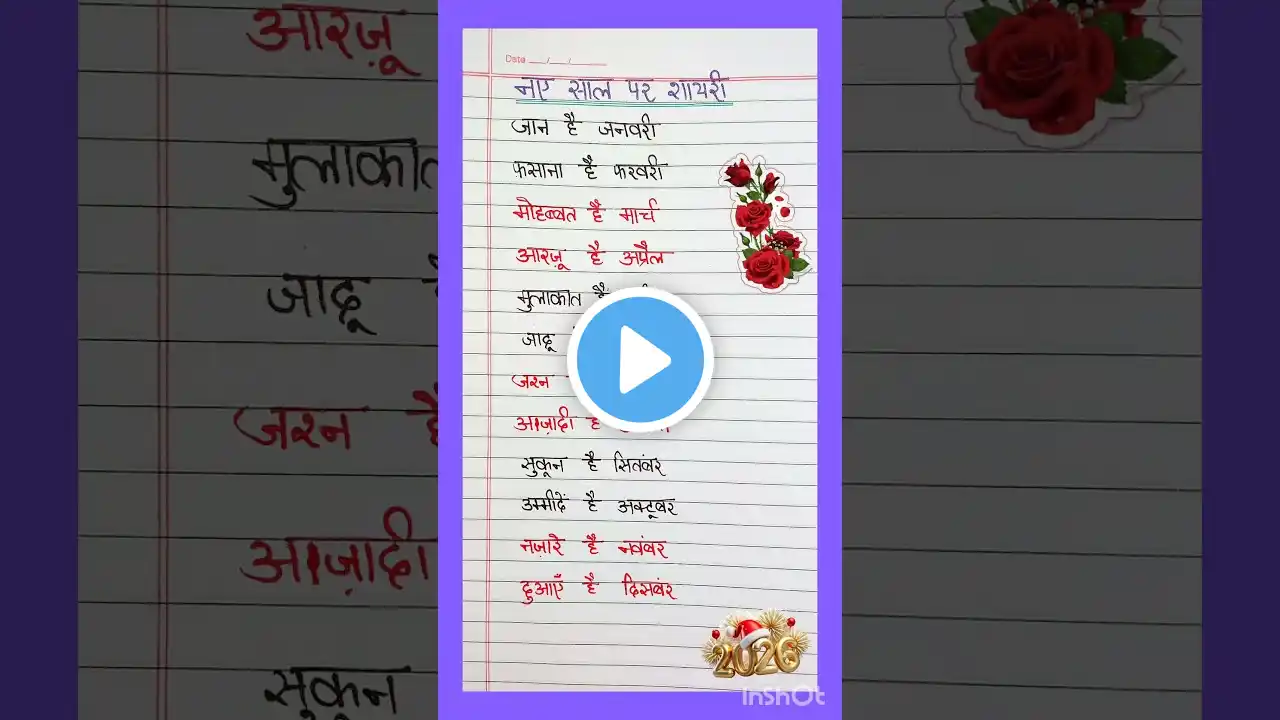 Date
नए साल पर शायरी
जान है जनवरी
फसाना है फरवरी
मोहब्बत है मार्च
आरज़ू है अप्रैल
मुलाकात है
जादू
जश्न
आज़ादी है
सुकून है सितंबर
उम्मीदें है अक्टूबर
नज़ारे है नवंबर
दुआएँ है दिसबंर
2026
InShOt
आरज़ू
मुलाकात
जादू
जश्न है
आज़ादी
सुकून